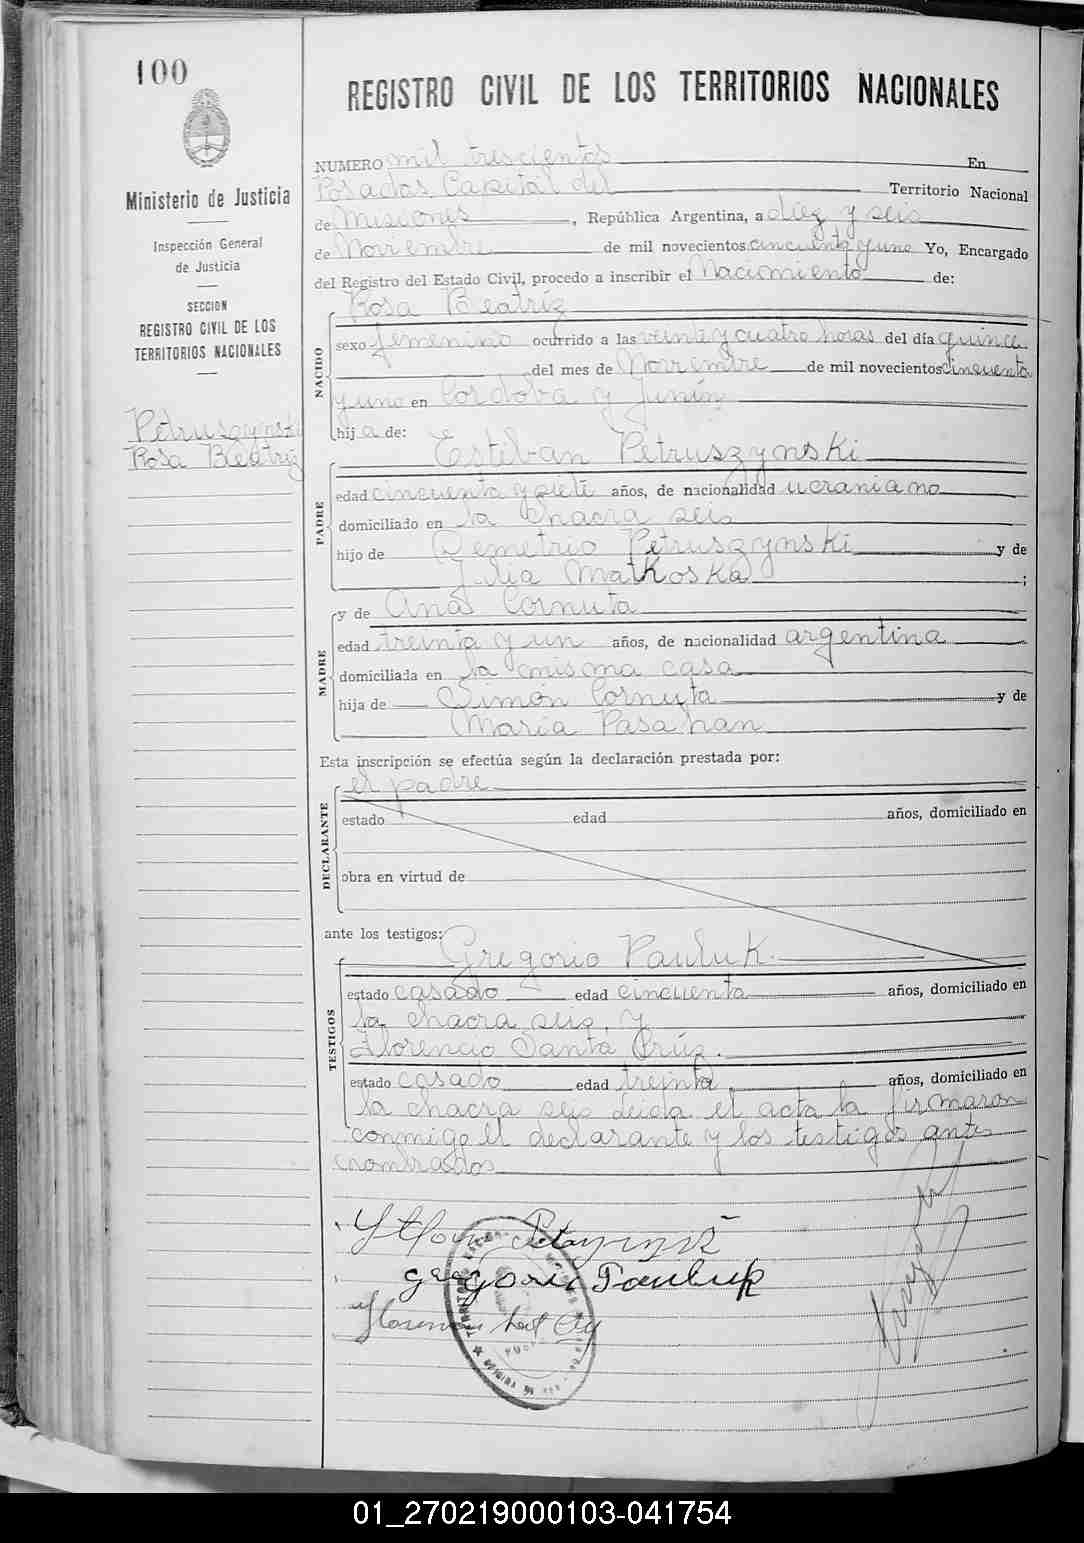 100
REGISTRO CIVIL DE LOS TERRITORIOS NACIONALES
Ministerio de Justicia
Inspección General
de Justicia
SECCION
REGISTRO CIVIL DE LOS
TERRITORIOS NACIONALES
Petruszynski
Rosa Beatriz
NUMERO mil trescientos En
Posadas Capital del Territorio Nacional
de Misiones, República Argentina, a diez y seis
de Noviembre de mil novecientos cincuenta y uno Yo, Encargado
del Registro del Estado Civil, procedo a inscribir el Nacimiento de:
NACIDO
Rosa Beatriz
sexo femenino ocurrido a las veinte y cuatro horas del día quince
del mes de Noviembre de mil novecientos cincuenta
y uno en Cordoba y Junín
hija de:
PADRE
Esteban Petruszynski
edad cincuenta y siete años, de nacionalidad ucraniano
domiciliado en la chacra seis
hijo de Demetrio Petruszynski y de
Julia Matkoska;
MADRE
y de Ana Cornuta
edad treinta y un años, de nacionalidad argentina
domiciliada en la misma casa
hija de Simón Cornuta y de
María Pasahan
Esta inscripción se efectúa según la declaración prestada por:
DECLARANTE
el padre
estado edad años, domiciliado en
obra en virtud de
ante los testigos:
TESTIGOS
Gregorio Pauluk.
estado casado edad cincuenta años, domiciliado en
la chacra seis, y
Florencio Santa Crúz.
estado casado edad treinta, años, domiciliado en
la chacra seis leida el acta la firmaron
conmigo el declarante y los testigos ante
nombrados
gregorio Pauluk
01_270219000103-041754